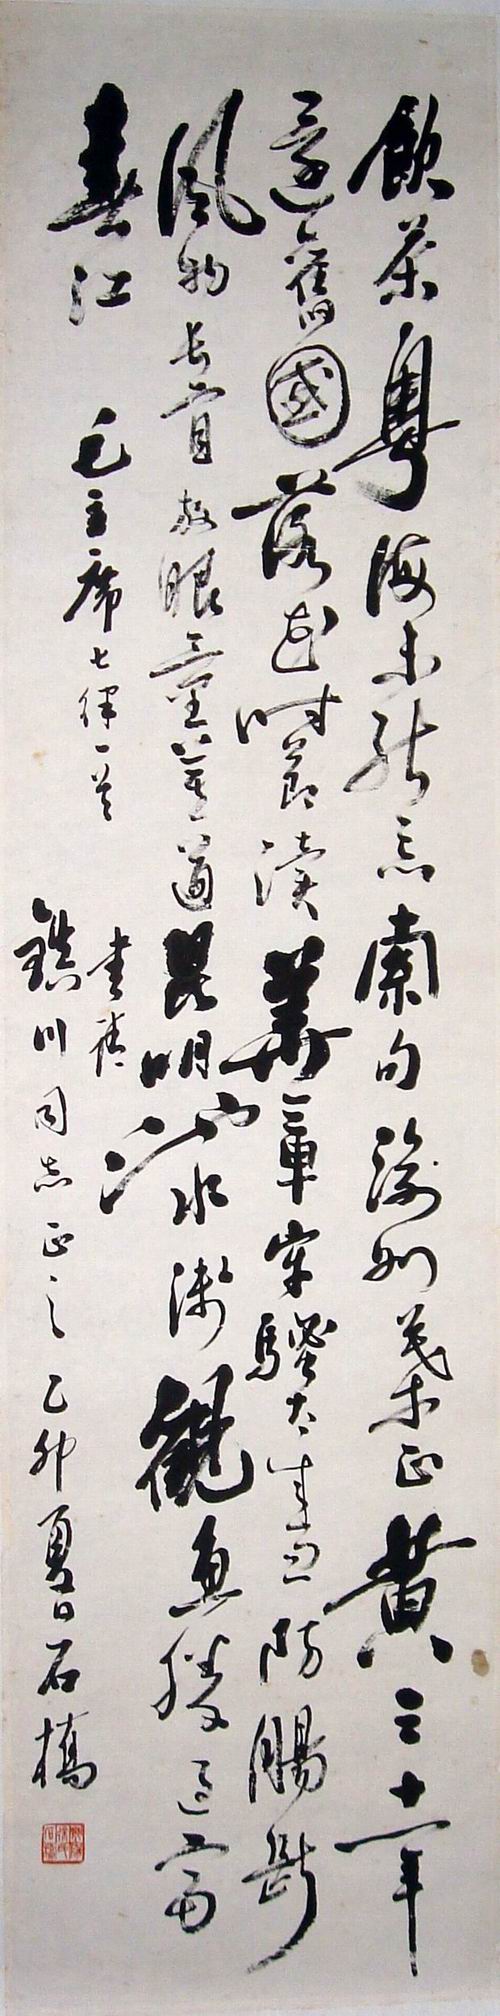 飲茶粵海未能忘索句渝州葉正黃三十一年
還舊國落花時節讀華章牢騷太盛防腸斷
風物長宜放眼量莫道昆明池水淺觀魚勝過富
春江 毛主席七律一首 書請
川同志正之 乙卯夏日石橋